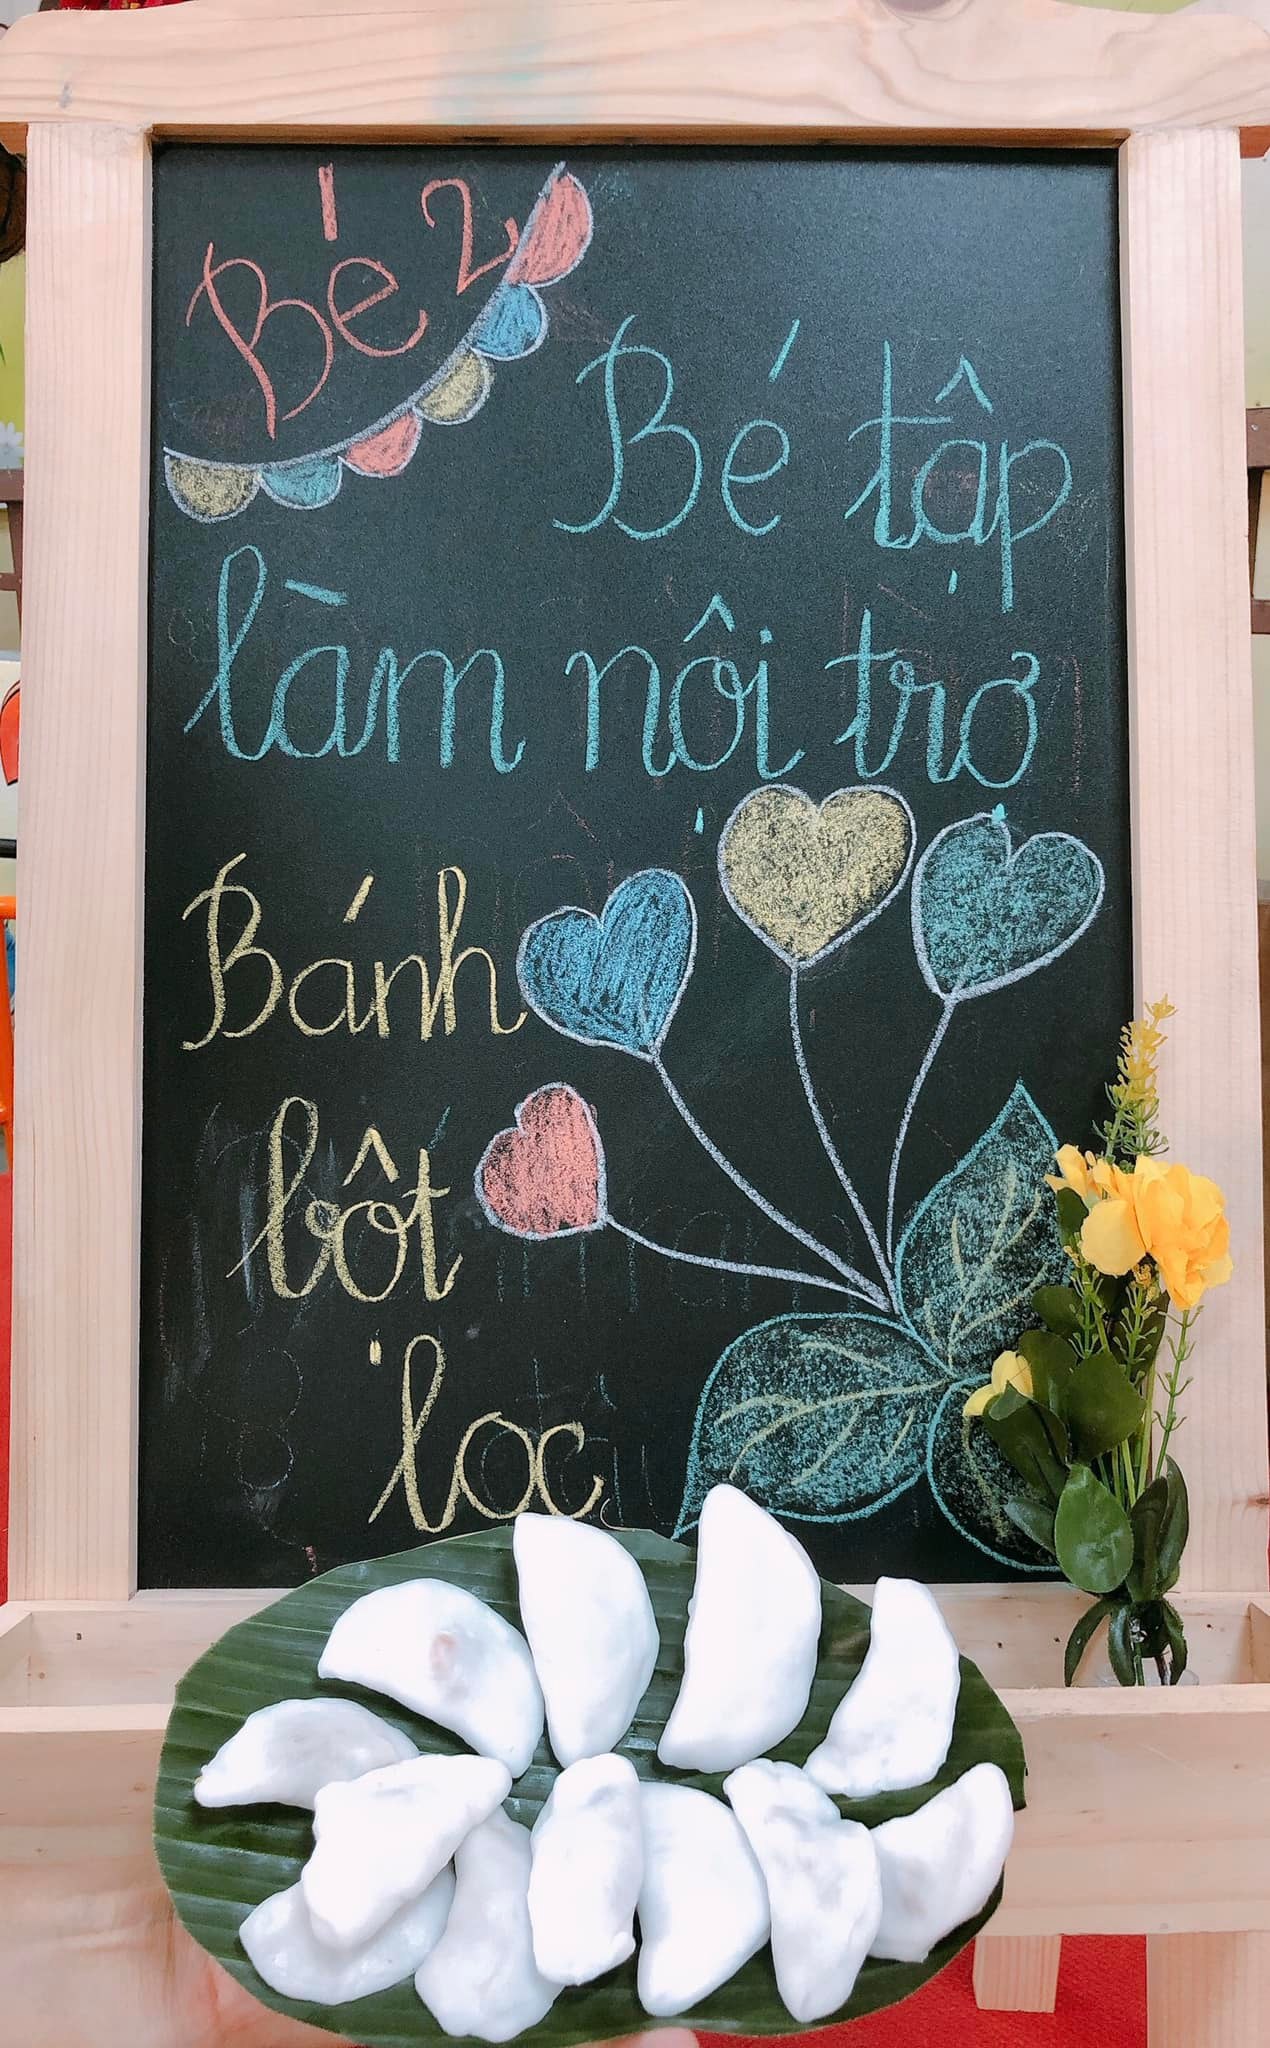 Bé 2
Bé tập
làm nội trợ
Bánh
bột
lọc